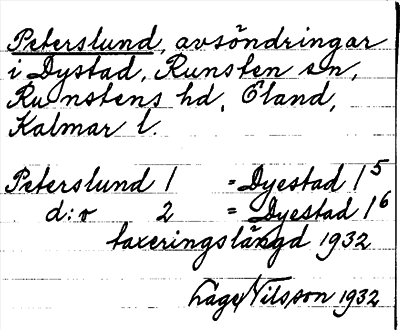 Peterslund, avsöndringar
i Dystad, Runsten sn,
Runstens hd, Öland,
Kalmar l.
Peterslund 1 = Dyestad 1⁵
d:o 2 = Dyestad 1⁶
taxeringslängd 1932
Lage Nilsson 1932